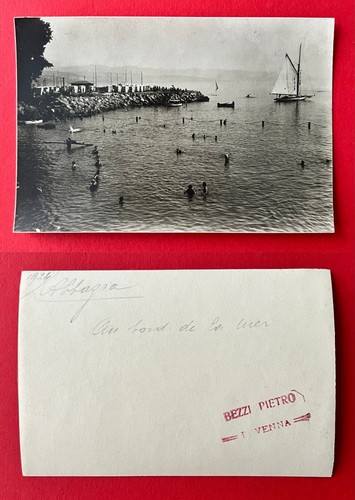 1926
Abbazia
Au bord de la mer
BEZZI PIETRO
VENNA